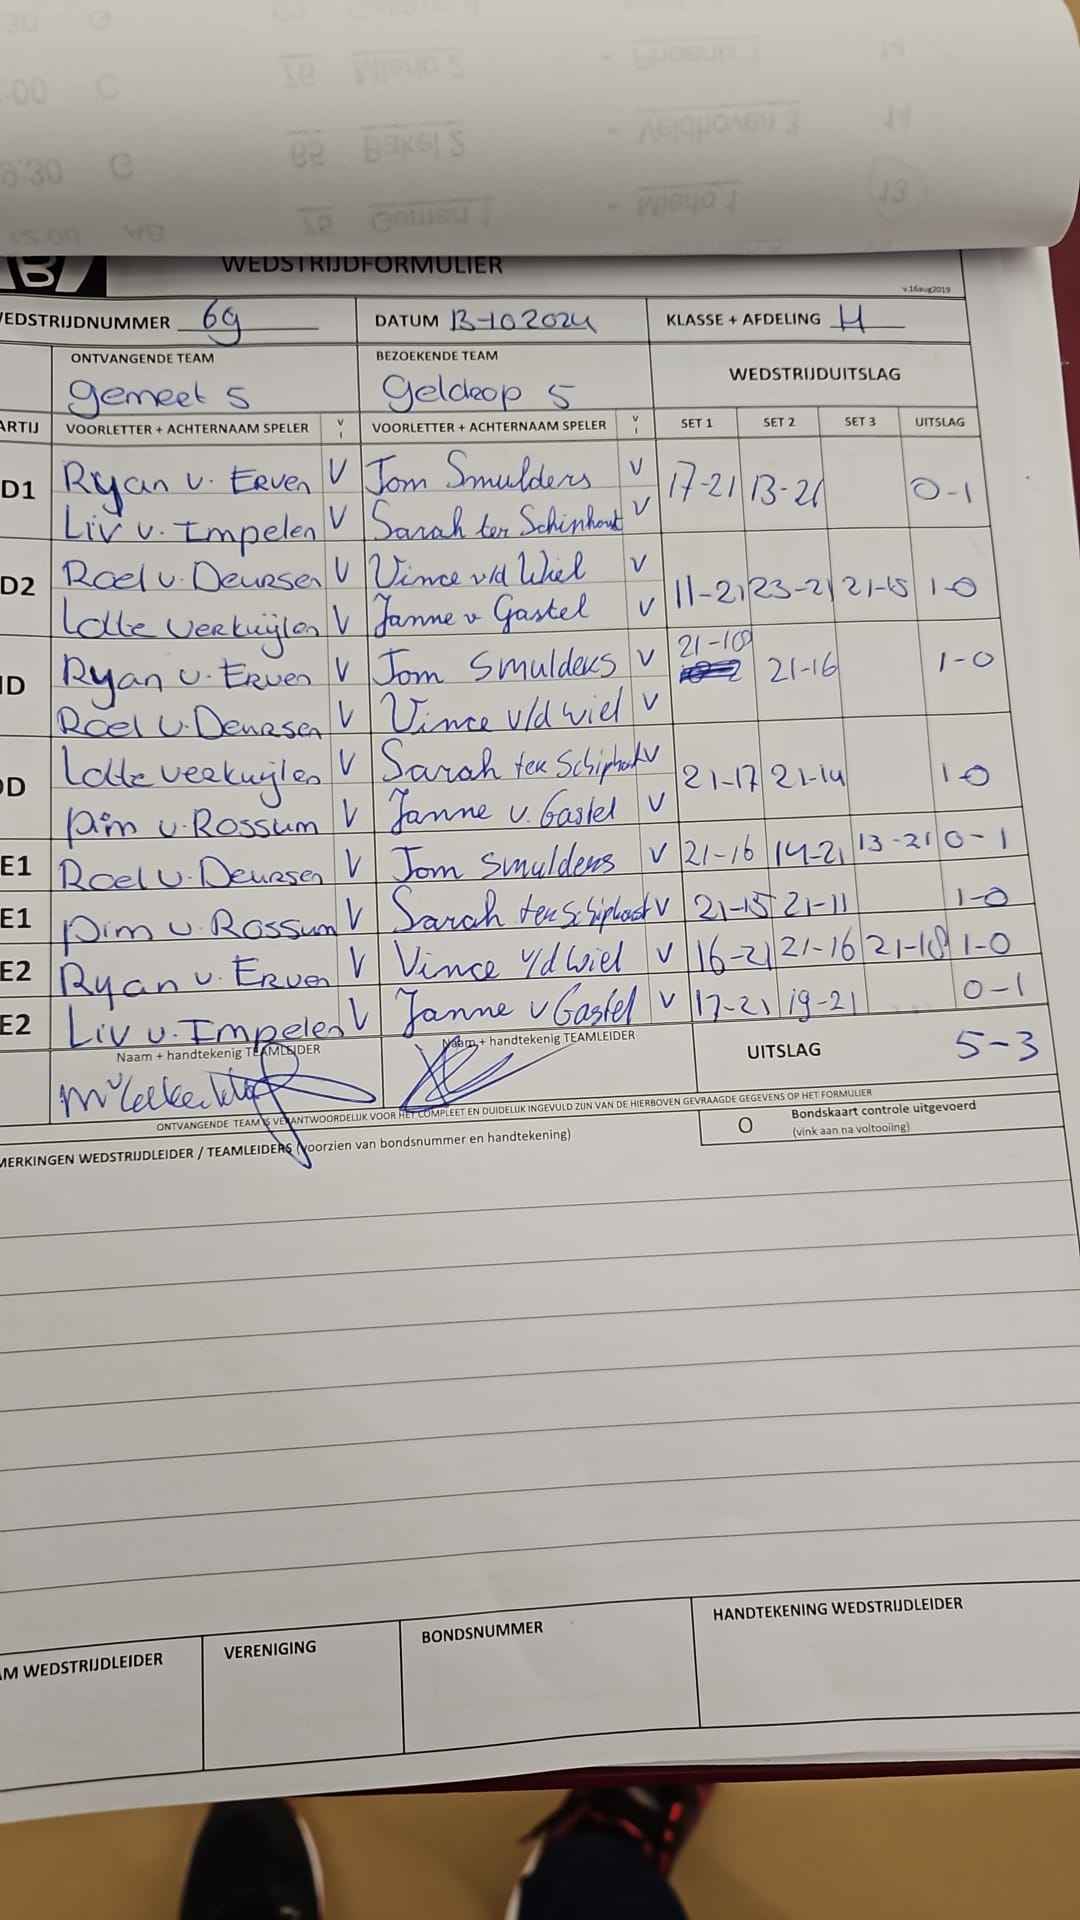 WEDSTRIJDFORMULIER
v.16aug2019
WEDSTRIJDNUMMER 69 DATUM 13-10 2024 KLASSE + AFDELING H
ONTVANGENDE TEAM BEZOEKENDE TEAM WEDSTRIJDUITSLAG
gemeet 5 Geldrop 5
ARTIJ VOORLETTER + ACHTERNAAM SPELER V I VOORLETTER + ACHTERNAAM SPELER V I SET 1 SET 2 SET 3 UITSLAG
D1 Ryan v. Erven V Tom Smulders V 17-21 13-21 0-1
Liv v. Impelen V Sarah ter Schiphout V
D2 Roel v. Deursen V Vince v/d Wiel V 11-21 23-21 21-15 1-0
Lotte Verkuijlen V Janne v Gastel V
D Ryan v. Erven V Tom Smulders V 21-18 21-16 1-0
Roel v. Deursen V Vince v/d Wiel V
D Lotte Verkuijlen V Sarah ter Schiphout V 21-17 21-14 1-0
Pim v. Rossum V Janne v. Gastel V
E1 Roel v. Deursen V Tom Smulders V 21-16 14-21 13-21 0-1
E1 Pim v. Rossum V Sarah ter Schiphout V 21-15 21-11 1-0
E2 Ryan v. Erven V Vince v/d Wiel V 16-21 21-16 21-18 1-0
E2 Liv v. Impelen V Janne v Gastel V 17-21 19-21 0-1
Naam + handtekenig TEAMLEIDER Naam + handtekenig TEAMLEIDER UITSLAG 5-3
ONTVANGENDE TEAM IS VERANTWOORDELIJK VOOR HET COMPLEET EN DUIDELIJK INGEVULD ZIJN VAN DE HIERBOVEN GEVRAAGDE GEGEVENS OP HET FORMULIER
O Bondskaart controle uitgevoerd
(vink aan na voltooiing)
MERKINGEN WEDSTRIJDLEIDER / TEAMLEIDERS (voorzien van bondsnummer en handtekening)
AM WEDSTRIJDLEIDER VERENIGING BONDSNUMMER HANDTEKENING WEDSTRIJDLEIDER